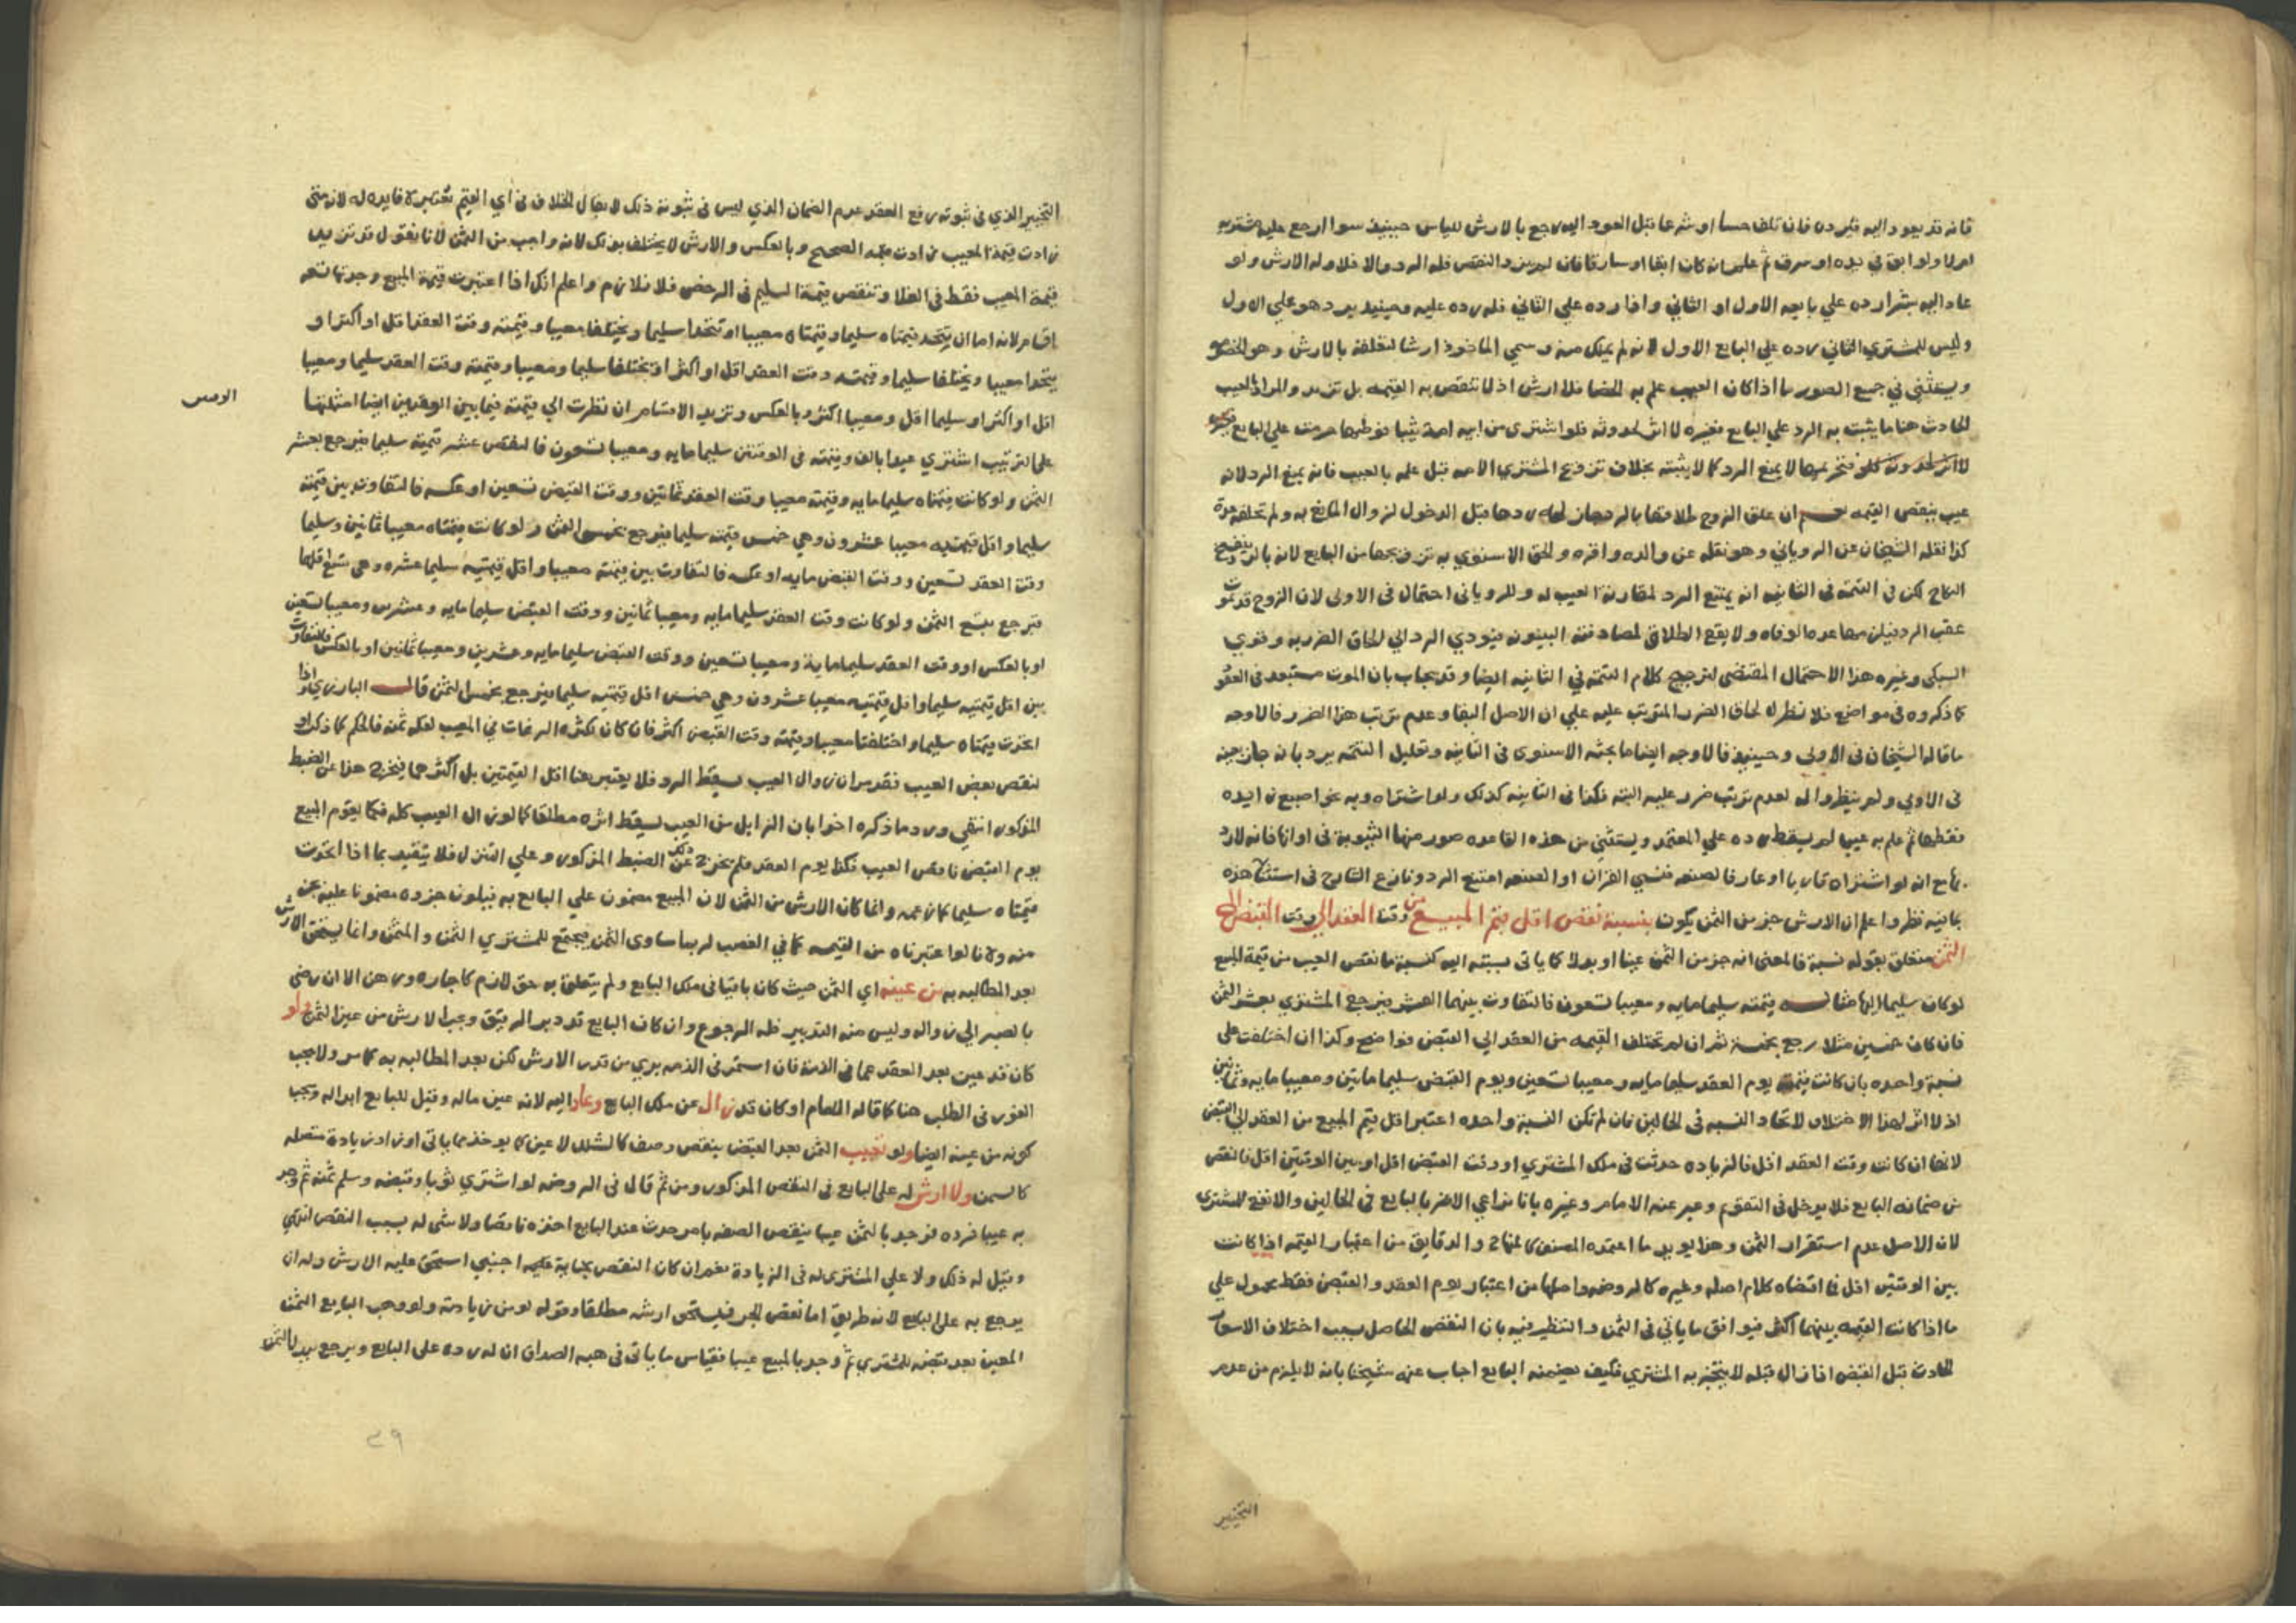 فانه قد يعود اليه فيرده فان تلف حسا او شرعا قبل العود اليه رجع بالارش للياس حينيذ سوا ارجع عليه مشتريه
ام لا ولو ابق في يده او سرق ثم علم انه كان ابقا او سارقا فان لم يزد النقص فله الرد والا فلا وله الارش ولو
عاد اليه بشرا رده علي بايعه الاول او الثاني واذا رده علي الثاني فله رده عليه وحينيذ يرد هو علي الاول
وليس للمشتري الثاني رده علي البايع الاول لانه لم يملك منه وسمي الماخوذ ارشا لتعلقه بالارش وهو الخصومه
ويستثني في جميع الصور ما اذا كان العيب علم به الخصا فلا ارش اذ لا تنقص به القيمه بل تزيد والمراد بالعيب
الحادث هنا ما يثبت به الرد علي البايع فغيره لا اثر لحدوثه فلو اشتري من ابيه امة ثيبا فوطيها حرمت علي البايع
فتحريمها لا يمنع الرد كما لا يثبته بخلاف تزويج المشتري الامه قبل علمه بالعيب فانه يمنع الرد لانه
عيب ينقص القيمه نعم ان علق الزوج طلاقها بالرد جاز له ردها قبل الدخول لزوال المانع به ولم تخلفه عدة
كذا نقله الشيخان عن الروياني وهو نقله عن والده واقره والحق الاسنوي به تزويجها من البايع لانه بالرد ينفسخ
النكاح لكن في التتمه في الثانيه انه يمتنع الرد لمقارنة العيب له وللروياني احتمال في الاولى لان الزوج قد يموت
عقب الرد فيلزمها عدة الوفاه ولا يقع الطلاق لمصادفته البينونه فيودي الرد الي الحاق الضرر به وقوي
السبكي وغيره هذا الاحتمال المقتضى لترجيح كلام التتمه في الثانيه ايضا وقد يجاب بان الموت مستبعد في العقو
كما ذكروه في مواضع فلا نظر له لحاق الضرر المترتب عليه علي ان الاصل البقا وعدم ترتب هذا الضرر فالاوجه
ما قاله الشيخان في الاولى وحينيذ فالاوجه ايضا ما بحثه الاسنوي في الثانيه وتعليل التتمه يرد بانه جاز حينه
في الاولي ولم ينظروا له لعدم ترتب ضرر عليه البته فكذا في الثانيه كذلك ولو اشتراه وبه نحو اصبع زايده
فقطعها ثم علم به عيبا لم يسقط رده علي المعتمد ويستثني من هذه القاعده صور منها الثيوبة في اوانها فانه لا رد
بها مع انه لو اشتراه قاريا او عارفا لصنعه فنسي القران او الصنعه امتنع الرد ونازع الشارح في استثنا هذه
بما فيه نظر واعلم ان الارش جز من الثمن يكون بنسبة نقص اقل قيم المبيع من وقت العقد الي وقت القبض الي
الثمن متعلق بقوله نسبة فالمعنى انه جز من الثمن عينا او بدلا كما ياتى نسبته اليه كنسبة ما نقص العيب من قيمة المبيع
لو كان سليما اليها مثاله قيمته سليما مايه ومعيبا تسعون فالتفاوت بينهما العشر فيرجع المشتري بعشر الثمن
فان كان خمسين مثلا رجع بخمسة ثم ان لم تختلف القيمه من العقد الي القبض فواضح وكذا ان اختلفت على
نسبة واحده بان كانت قيمته يوم العقد سليما مايه ومعيبا تسعين ويوم القبض سليما مايتين ومعيبا مايه وثمانين
اذ لا اثر لهذا الاختلاف لاتحاد النسبه في الحالين فان لم تكن النسبة واحده اعتبر اقل قيم المبيع من العقد الي القبض
لانها ان كانت وقت العقد اقل فالزياده حدثت في ملك المشتري او وقت القبض اقل او بين الوقتين اقل فالنقص
من ضمانه البايع فلا يدخل في التقويم وعبر عنه الامام وغيره بانا نراعي الاضر بالبايع في الحالين والانفع للمشتري
لان الاصل عدم استقرار الثمن وهذا يويد ما اعتمده المصنف كالمنهاج والدقايق من اعتبار القيمه اذا كانت
بين الوقتين اقل فما اقتضاه كلام اصله وغيره كالروضه واصلها من اعتبار يوم العقد والقبض فقط محمول علي
ما اذا كانت القيمه بينهما اكثر فيوافق ما ياتي في الثمن والتنظير فيه بان النقص الحاصل بسبب اختلاف الاسعار
الحادث قبل القبض اذا زال قبله لا يتخير به المشتري فكيف يضمنه البايع اجاب عنه شيخنا بانه لا يلزم من عدم
التخيير
التخيير الذي في ثبوته رفع العقد عدم الضمان الذي ليس في ثبوته ذلك لا يقال الخلاف في اي القيم تعتبر لا فايده له لانه متى
زادت قيمة المعيب زادت قيمة الصحيح وبالعكس والارش لا يختلف بذلك لانه واجب من الثمن لانا نقول قد تزيد
قيمة المعيب فقط في الغلا وتنقص قيمة السليم في الرخص فلا تلازم واعلم انك اذا اعتبرت قيمة المبيع وجدتها تسعه
اقسام لانه اما ان يتحد قيمتاه سليما وقيمتاه معيبا او تتحدا سليما ويختلفا معيبا وقيمته وقت العقد اقل او اكثر او
يتحدا معيبا ويختلفا سليما وقيمته وقت العقد اقل او اكثر او يختلفا سليما ومعيبا وقيمته وقت العقد سليما ومعيبا
الوقتين
اقل او اكثر او سليما اقل ومعيبا اكثر وبالعكس وتزيد الاقسام ان نظرت الي قيمته فيما بين الوقتين ايضا امثلتها
علي الترتيب اشتري عبدا بالف وقيمته في الوقتين سليما مايه ومعيبا تسعون فالنقص عشر قيمته سليما فيرجع بعشر
الثمن ولو كانت قيمتاه سليما مايه وقيمته معيبا وقت العقد ثمانين ووقت القبض تسعين او عكسه فالتفاوت بين قيمته
سليما واقل قيمتيه معيبا عشرون وهي خمس قيمته سليما فيرجع بخمس الثمن ولو كانت قيمتاه معيبا ثمانين وسليما
وقت العقد تسعين ووقت القبض مايه او عكسه فالتفاوت بين قيمته معيبا واقل قيمتيه سليما عشره وهي تسع اقلها
فيرجع بتسع الثمن ولو كانت وقت العقد سليما مايه ومعيبا ثمانين ووقت القبض سليما مايه وعشرين ومعيبا تسعين
او بالعكس او وقت العقد سليما ماية ومعيبا تسعين ووقت القبض سليما مايه وعشرين ومعيبا ثمانين او بالعكس فالتفاوت
بين اقل قيمتيه سليما واقل قيمتيه معيبا عشرون وهي خمس اقل قيمتيه سليما فيرجع بخمس الثمن قال البارزي واذا
اتحدت قيمتاه سليما واختلفتا معيبا وقيمته وقت القبض اكثر فان كان لكثرة الرغبات في المعيب لقلة ثمنه فالحكم كما ذكر او
لنقص بعض العيب فقد مر ان زوال العيب يسقط الرد فلا يعتبر هنا اقل القيمتين بل اكثرهما فيخرج هذا عن الضبط
المذكور انتهي ورد ما ذكره اخرا بان الزايل من العيب يسقط اثره مطلقا كما لو زال العيب كله فكما يقوم المبيع
يوم القبض ناقص العيب فكذا يوم العقد فلم يخرج ذلك عن الضبط المذكور وعلي التنزل فلا يتقيد بما اذا اتحدت
قيمتاه سليما كما زعمه وانما كان الارش من الثمن لان المبيع مضمون علي البايع به فيكون جزوه مضمونا عليه بجز
منه ولانا لو اعتبرناه من القيمه كما في الغصب لربما ساوى الثمن فيجتمع للمشتري الثمن والمثمن وانما يستحق الارش
بعد المطالبه به من عينه اي الثمن حيث كان باقيا في ملك البايع ولم يتعلق به حق لازم كاجاره ورهن الا ان رضي
بالصبر الي زواله وليس منه التدبير فله الرجوع وان كان البايع قد دبر الرقيق وجب الارش من عين الثمن ولو
كان قد عين بعد العقد عما في الذمة فان استمر في الذمه بري من قدر الارش لكن بعد المطالبه به كما مر ولا يجب
الفور في الطلب هنا كما قاله الامام او كان قد زال عن ملك البايع وعاد اليه لانه عين ماله وقيل للبايع ابداله وتجب
كونه من عينه ايضا ولو تعيب الثمن بعد القبض بنقص وصف كالشلل لا عين كما يوخذ مما ياتى او زاد زيادة متصله
كالسمن ولا ارش له علي البايع في النقص المذكور ومن ثم قال في الروضه لو اشتري ثوبا وقبضه وسلم ثمنه ثم وجد
به عيبا فرده فوجد بالثمن عيبا ينقص الصفه بامر حدث عند البايع اخذه ناقصا ولا شي له بسبب النقص انتهي
وقيل له ذلك ولا علي المشتري له في الزيادة نعم ان كان النقص بجناية عليه اجنبي استحق عليه الارش وله ان
يرجع به علي البايع لانه طريق اما نقص الجز فيستحق ارشه مطلقا وقوله لو من زيادته ولو وهب البايع الثمن
المعين بعد قبضه للمشتري ثم وجد بالمبيع عيبا فقياس ما ياتى في هبه الصداق ان له رده على البايع ويرجع ببدل الثمن
٣٩